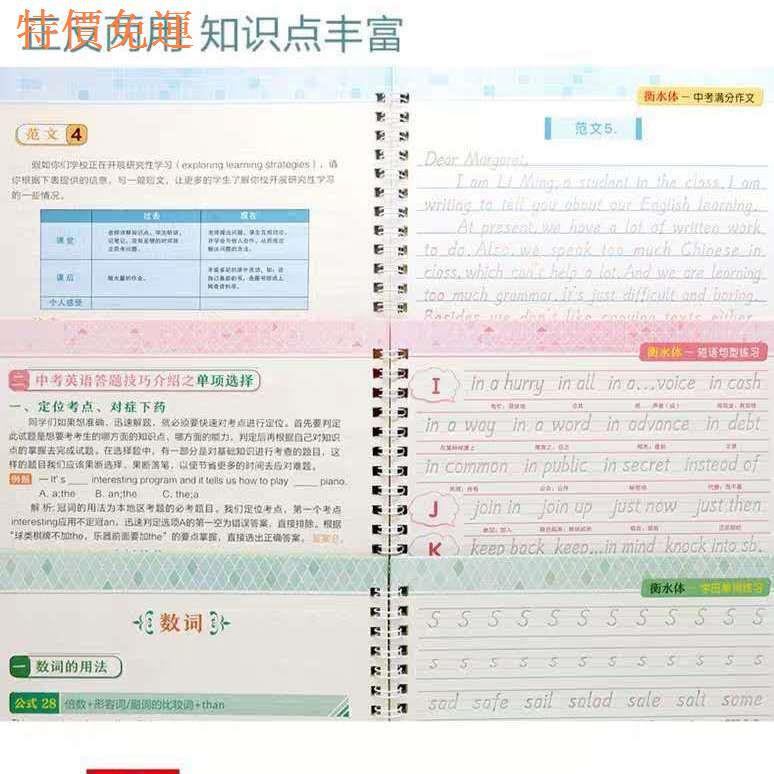 特價免運
正反两用 知识点丰富
范文 4
假如你们学校正在开展研究性学习(exploring learning strategies),请
你根据下表提供的信息,写一篇短文,让更多的学生了解你校开展研究性学习
的一些情况。
过去 现在
课堂
课后
个人感受
衡水体—中考满分作文
范文5.
Dear Margaret,
I am Li Ming, a student in the class. I am
writing to tell you about our English learning.
At present, we have a lot of written work
to do. Also, we speak too much Chinese in
class, which can't help a lot. And we are learning
too much grammar. It's just difficult and boring.
Besides, we don't like copying texts either
二 中考英语答题技巧介绍之单项选择
一、定位考点、对症下药
同学们如果想准确、迅速解题,就必须要快速对考点进行定位。首先要判定
此试题是想要考考生的哪方面的知识点,哪方面的能力,判定后再根据自己对知识
点的掌握去完成试题。在选择题中,有一部分是对基础知识进行考查的题目,这
样的题目我们应该果断选择,果断落笔,以便节省更多的时间去应对难题。
例题 —It's ____ interesting program and it tells us how to play ____ piano.
A. a;the B. an;the C. the;a
解析:冠词的用法为本地区考题的必考题目,我们定位考点,第一个考点
interesting应用不定冠an,迅速判定选项A的第一空为错误答案,直接排除,根据
“球类棋牌不加the,乐器前面要加the”的要点掌握,直接选出正确答案。
衡水体—短语句型练习
I in a hurry in all in a...voice in cash
in a way in a word in advance in debt
in common in public in secret instead of
J join in join up just now just then
K keep back keep...in mind knock into sb.
数词
一 数词的用法
公式 28 倍数+形容词/副词的比较级+than
衡水体—字母单词练习
S S S S S S S S S S S S S
s s s s s s s s s s s s s
sad safe sail salad sale salt same